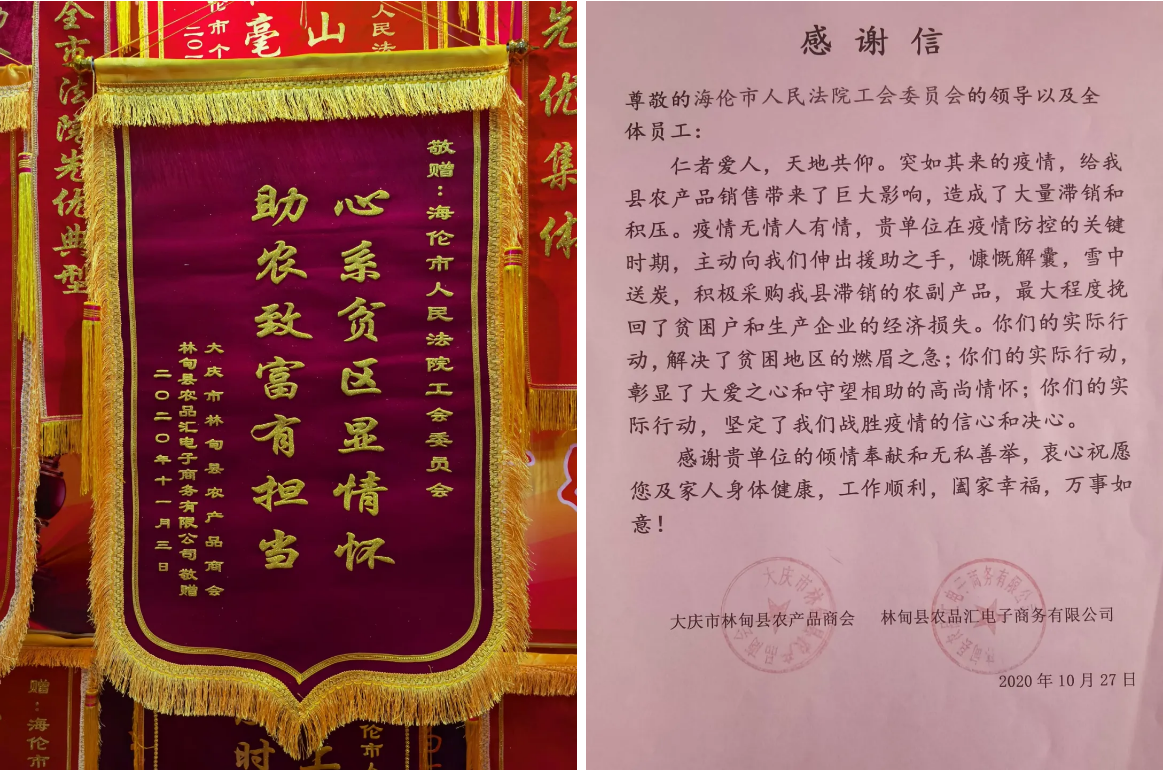 敬赠：海伦市人民法院工会委员会
心系贫区显情怀
助农致富有担当
大庆市林甸县农产品商会
林甸县农品汇电子商务有限公司 敬赠
二〇二〇年十一月三日
全市法院先优典型
先优集体
毫
山
人民法
伦市个
二〇二
赠：海伦市
伦市人
时
感谢信
尊敬的海伦市人民法院工会委员会的领导以及全
体员工：
仁者爱人，天地共仰。突如其来的疫情，给我
县农产品销售带来了巨大影响，造成了大量滞销和
积压。疫情无情人有情，贵单位在疫情防控的关键
时期，主动向我们伸出援助之手，慷慨解囊，雪中
送炭，积极采购我县滞销的农副产品，最大程度挽
回了贫困户和生产企业的经济损失。你们的实际行
动，解决了贫困地区的燃眉之急；你们的实际行动，
彰显了大爱之心和守望相助的高尚情怀；你们的实
际行动，坚定了我们战胜疫情的信心和决心。
感谢贵单位的倾情奉献和无私善举，衷心祝愿
您及家人身体健康，工作顺利，阖家幸福，万事如
意！
大庆市林甸县农产品商会 林甸县农品汇电子商务有限公司
2020年10月27日